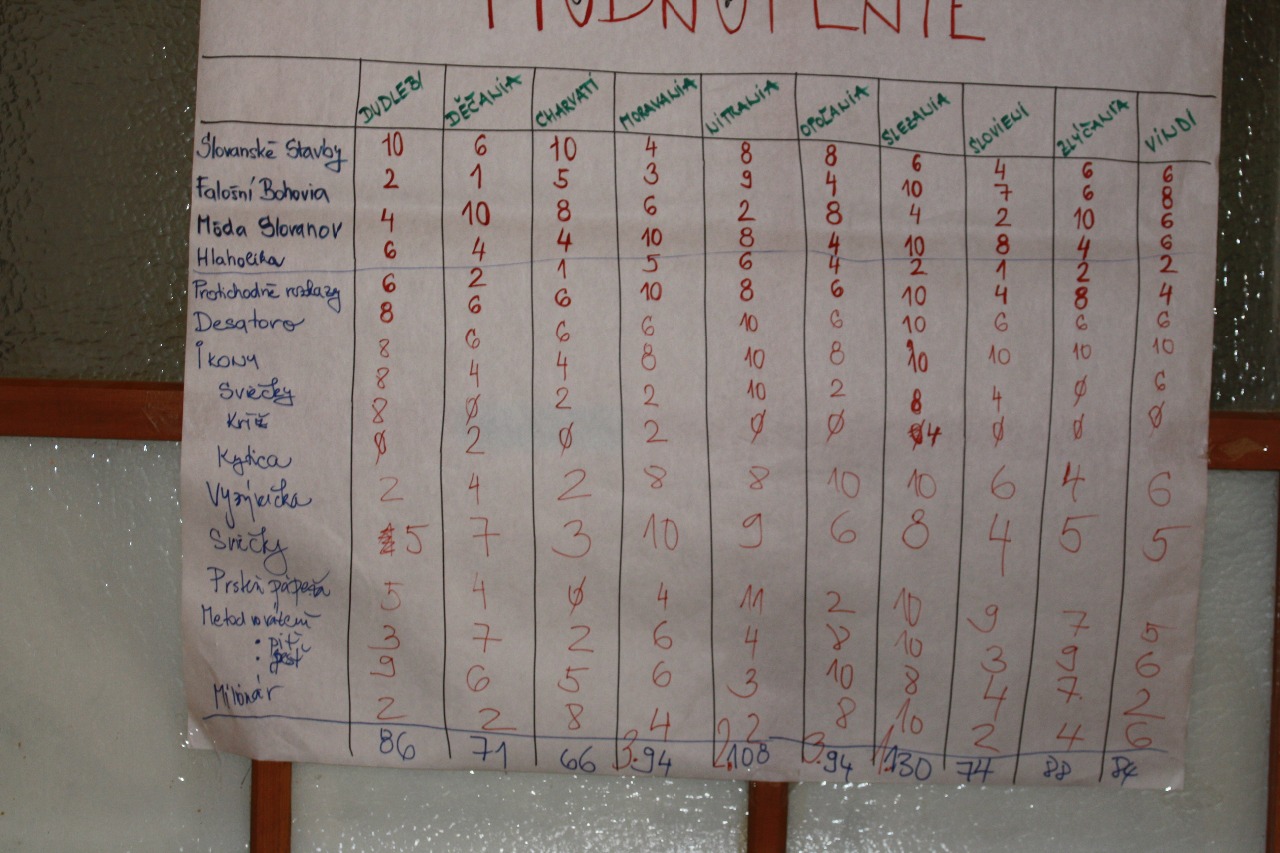 HODNOTENIE
DUDLEBI DĚČANIA CHARVATI MORAVANIA NITRANIA OPOČANIA SLEZANIA SLOVIENI ZLYČANIA VINDI
Slovanské Stavby 10 6 10 4 8 8 6 4 6 6
Falošní Bohovia 2 1 5 3 9 4 10 7 6 8
Móda Slovanov 4 10 8 6 2 8 4 2 10 6
Hlaholika 6 4 4 10 8 4 10 8 4 6
Protichodné rozkazy 6 2 1 5 6 4 2 1 2 2
Desatoro 8 6 6 10 8 6 10 4 8 4
Ikony 8 6 6 6 10 6 10 6 6 6
Sviečky 8 4 4 8 10 8 10 10 10 10
Kríž 8 0 2 2 10 2 8 4 0 6
Kytica 0 2 0 2 0 0 4 0 0 0
Vyzývička 2 4 2 8 8 10 10 6 4 6
Svíčky 5 7 3 10 9 6 8 4 5 5
Prsteň pápeža 5 4 0 4 11 2 10 9 7 5
Metod vo väzení
• piť 3 7 2 6 4 8 10 3 9 6
• jesť 9 6 5 6 3 10 8 4 7 2
Milionár 2 2 8 4 2 8 10 2 4 6
86 71 66 3.94 2.108 3.94 1.130 74 88 84